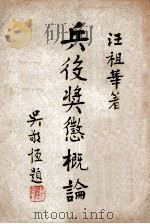 汪祖華著
兵役奬懲概論
吳敬恆題